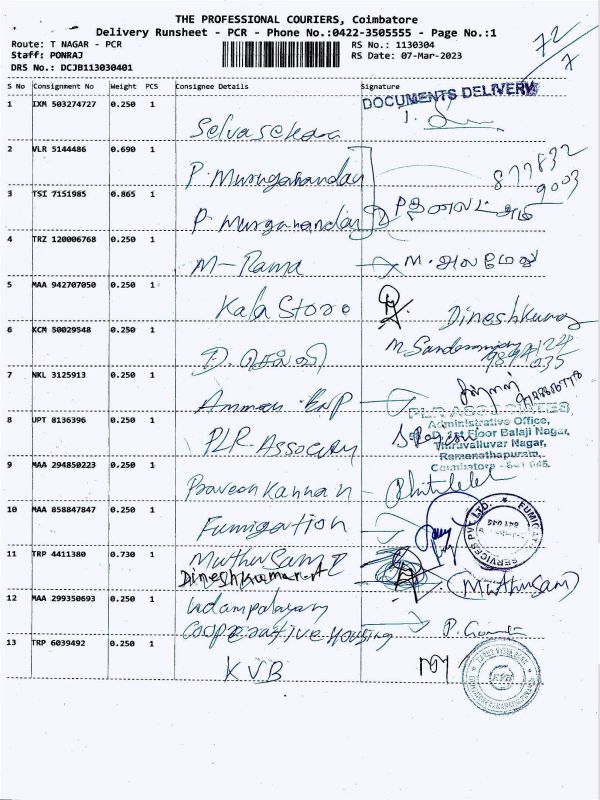 THE PROFESSIONAL COURIERS, Coimbatore
Delivery Runsheet - PCR - Phone No.:0422-3505555 - Page No.:1
Route: T NAGAR - PCR RS No.: 1130304
Staff: PONRAJ RS Date: 07-Mar-2023
DRS No.: DCJB113030401
72/7
S No Consignment No Weight PCS Consignee Details Signature
DOCUMENTS DELIVERY
1 IXM 503274727 0.250 1
Selvasekara
2 VLR 5144486 0.690 1
P. Muruganandan
877832
9003
3 TSI 7151985 0.865 1
P. Muruganandan
4 TRZ 120006768 0.250 1
M-Rama
5 MAA 942707050 0.250 1
Kala Store Dineshkumar
6 KCM 50029548 0.250 1
7 NKL 3125913 0.250 1
Amman
PLR ASSOCIATES
Administrative Office,
1st Floor Balaji Nagar,
Thiruvalluvar Nagar,
Ramanathapuram,
Coimbatore - 641 045.
8 UPT 8136396 0.250 1
PLR
9 MAA 294850223 0.250 1
Praveen Kannan
10 MAA 858847847 0.250 1
Fumigation
11 TRP 4411380 0.730 1
Muthusami
Dineshkumar.A (Muthusami)
12 MAA 299350693 0.250 1
Cooperative Housing
13 TRP 6039492 0.250 1
KVB